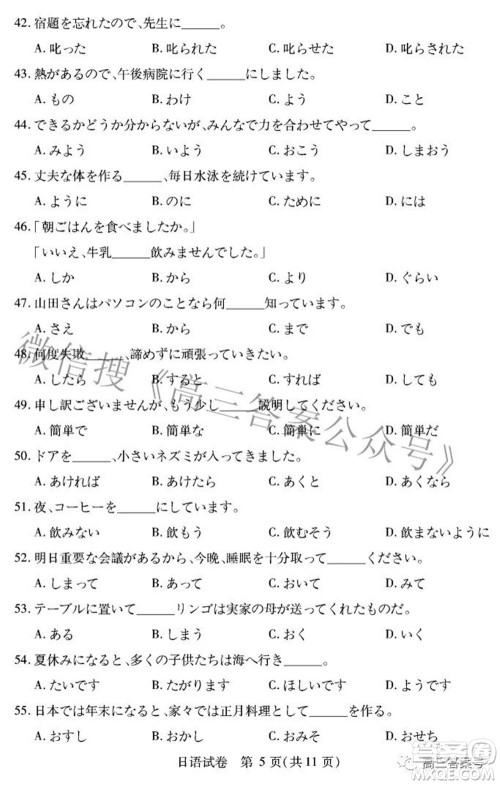 42. 宿題を忘れたので、先生に______。
A. 叱った B. 叱られた C. 叱らせた D. 叱れられた
43. 熱があるので、午後病院に行く______にしました。
A. もの B. わけ C. よう D. こと
44. できるかどうか分からないが、みんなで力を合わせてやって______。
A. みよう B. いよう C. おこう D. しまおう
45. 丈夫な体を作る______、毎日水泳を続けています。
A. ように B. のに C. ために D. には
46. 「朝ごはんを食べましたか。」
「いいえ、牛乳______飲みませんでした。」
A. しか B. から C. より D. ぐらい
47. 山田さんはパソコンのことなら何______知っています。
A. さえ B. から C. まで D. でも
48. 何度失敗______、諦めずに頑張っていきたい。
A. したら B. すると C. すれば D. しても
49. 申し訳ございませんが、もう少し______説明してください。
A. 簡単で B. 簡単な C. 簡単に D. 簡単だ
50. ドアを______、小さいネズミが入ってきました。
A. あければ B. あけると C. あくと D. あくなら
51. 夜、コーヒーを______にしています。
A. 飲みない B. 飲もう C. 飲むよう D. 飲まないように
52. 明日重要な会議があるから、今晩、睡眠を十分取って______ください。
A. しまって B. あって C. おいて D. みて
53. テーブルに置いて______リンゴは実家の母が送ってくれたものだ。
A. ある B. しまう C. おく D. いる
54. 夏休みになると、多くの子供たちは海へ行き______。
A. たいです B. たがります C. ほしいです D. ようです
55. 日本では年末になると、家々では正月料理として______を作ります。
A. おすし B. おかし C. おさけ D. おせち
日语试卷 第 5 页(共 11 页)
微信搜《高三答案公众号》
高三答案号